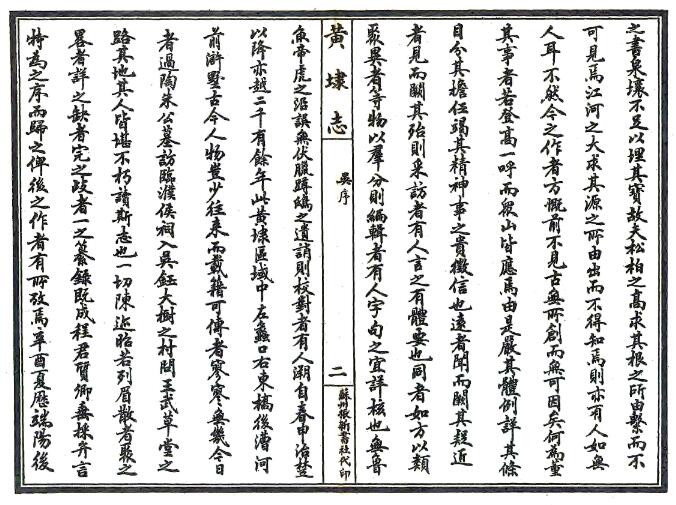 之書泉壤不足以埋其寶故夫松柏之高求其根之所由繫而不
可見焉江河之大求其源之所由出而不得知焉則亦有人如無
人耳不然今之作者方慨前不見古無所創而無可因矣何為董
其事者若登高一呼而眾山皆應焉由是嚴其體例詳其條
目分其擔任竭其精神事之貴徵信也遠者聞而闕其疑近
者見而闕其殆則采訪者有人言之有體要也同者如方以類
聚異者等物以羣分則編輯者有人字句之宜詳核也無魯
黄埭志
吳序
二
蘇州振新書社代印
魚帝虎之沿誤無伏臘蹲鴟之遺誚則校對者有人溯自春申治楚
以降亦越二千有餘年此黄埭區域中左蠡口右東橋後漕河
前滸墅古今人物豈少往來而載籍可傳者寥寥無幾今日
者過陶朱公墓訪臨濮侯祠入吳鈺大樹之村問王武草堂之
路其地其人皆堪不朽讀斯志也一切陳迹昭若列眉散者聚之
畧者詳之缺者完之歧者一之纂錄既成程君質卿無採弁言
特為之序而歸之俾後之作者有所攷焉辛酉夏厯端陽後